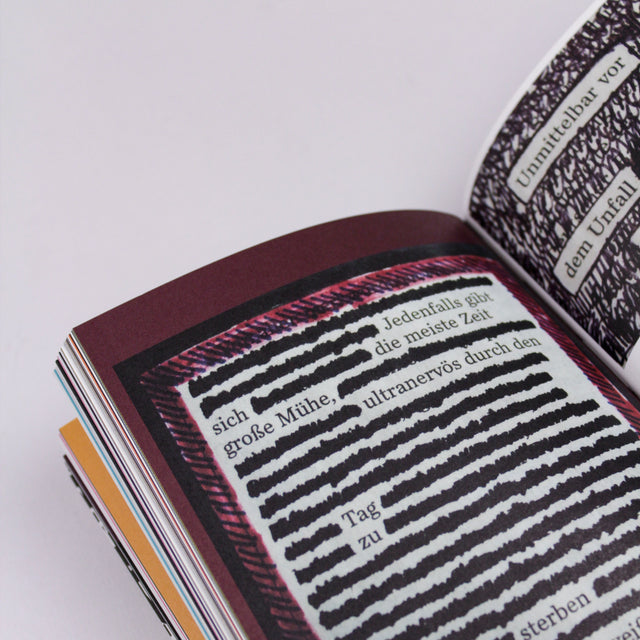 Jedenfalls gibt
sich die meiste Zeit
große Mühe,
ultranervös durch den
Tag
zu
sterben
Unmittelbar vor
dem Unfall